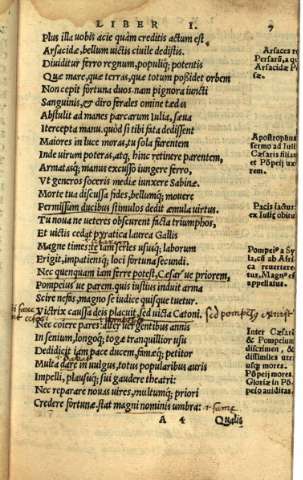 LIBER I. 7
Plus illa uobis acie quàm creditis actum est.
Arsacidæ, bellum uictis ciuile dedistis.
Diuiditur ferro regnum, populiq; potentis
Quæ mare, quæ terras, quæ totum poßidet orbem
Non cepit fortuna duos. nam pignora iuncti
Sanguinis, & diro ferales omine tædas
Abstulit ad manes parcarum Iulia, sæua
Itercepta manu. quòd si tibi fata dedissent
Maiores in luce moras, tu sola furentem
Inde uirum poteras, atq; hinc retinere parentem,
Armatasq; manus excusso iungere ferro,
Vt generos soceris mediæ iunxere Sabinæ.
Morte tua discussa fides, bellumq; mouere
Permissum ducibus. stimulos dedit æmula uirtus.
Tu noua ne ueteres obscurent facta triumphos,
Et uictis cedat pyratica laurea Gallis
Magne times. te iam series ususq; laborum
Erigit, impatiensq; loci fortuna secundi.
Nec quenquam iam ferre potest, Cæsar ue priorem,
Pompeius ue parem. quis iustius induit arma
Scire nefas, magno se iudice quisque tuetur.
Victrix causa deis placuit, sed uicta Catoni.
Nec coiere pares: alter uergentibus annis
In senium, longoq; togæ tranquillior usu
Dedidicit iam pace ducem, famæq; petitor
Multa dare in uulgus, totus popularibus auris
Impelli, plausuq; sui gaudere theatri:
Nec reparare nouas uires, multumq; priori
Credere fortunæ. stat magni nominis umbra:
A 4 Qualis
Arsaces re
Persarũ, a quo
Arsacidæ P
sæ.
Apostrophus
sermo ad Iuli
Cæsaris filiam
et Põpeij uxorem
Pacis iactur
ex Iuliæ obitu
Pompei9 a Sy
la, cũ ab Afri
ca reuertere
tur, Magn9 est
appellatus.
Inter Cæsarem
& Pompeium
discrimen, &
dissimiles utri
usq; mores.
Põpeij mores.
Gloriæ in Põ
auiditas.